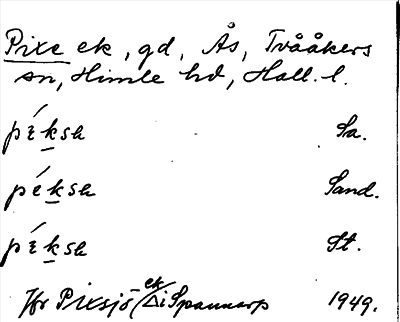 Pixe ek, gd, Ås, Tvååkers
sn, Himle hd, Hall. l.
péksa Sa.
péksa Sand.
péksa St.
Jfr Pixsjö-ek/Δ i Spannarp 1949.